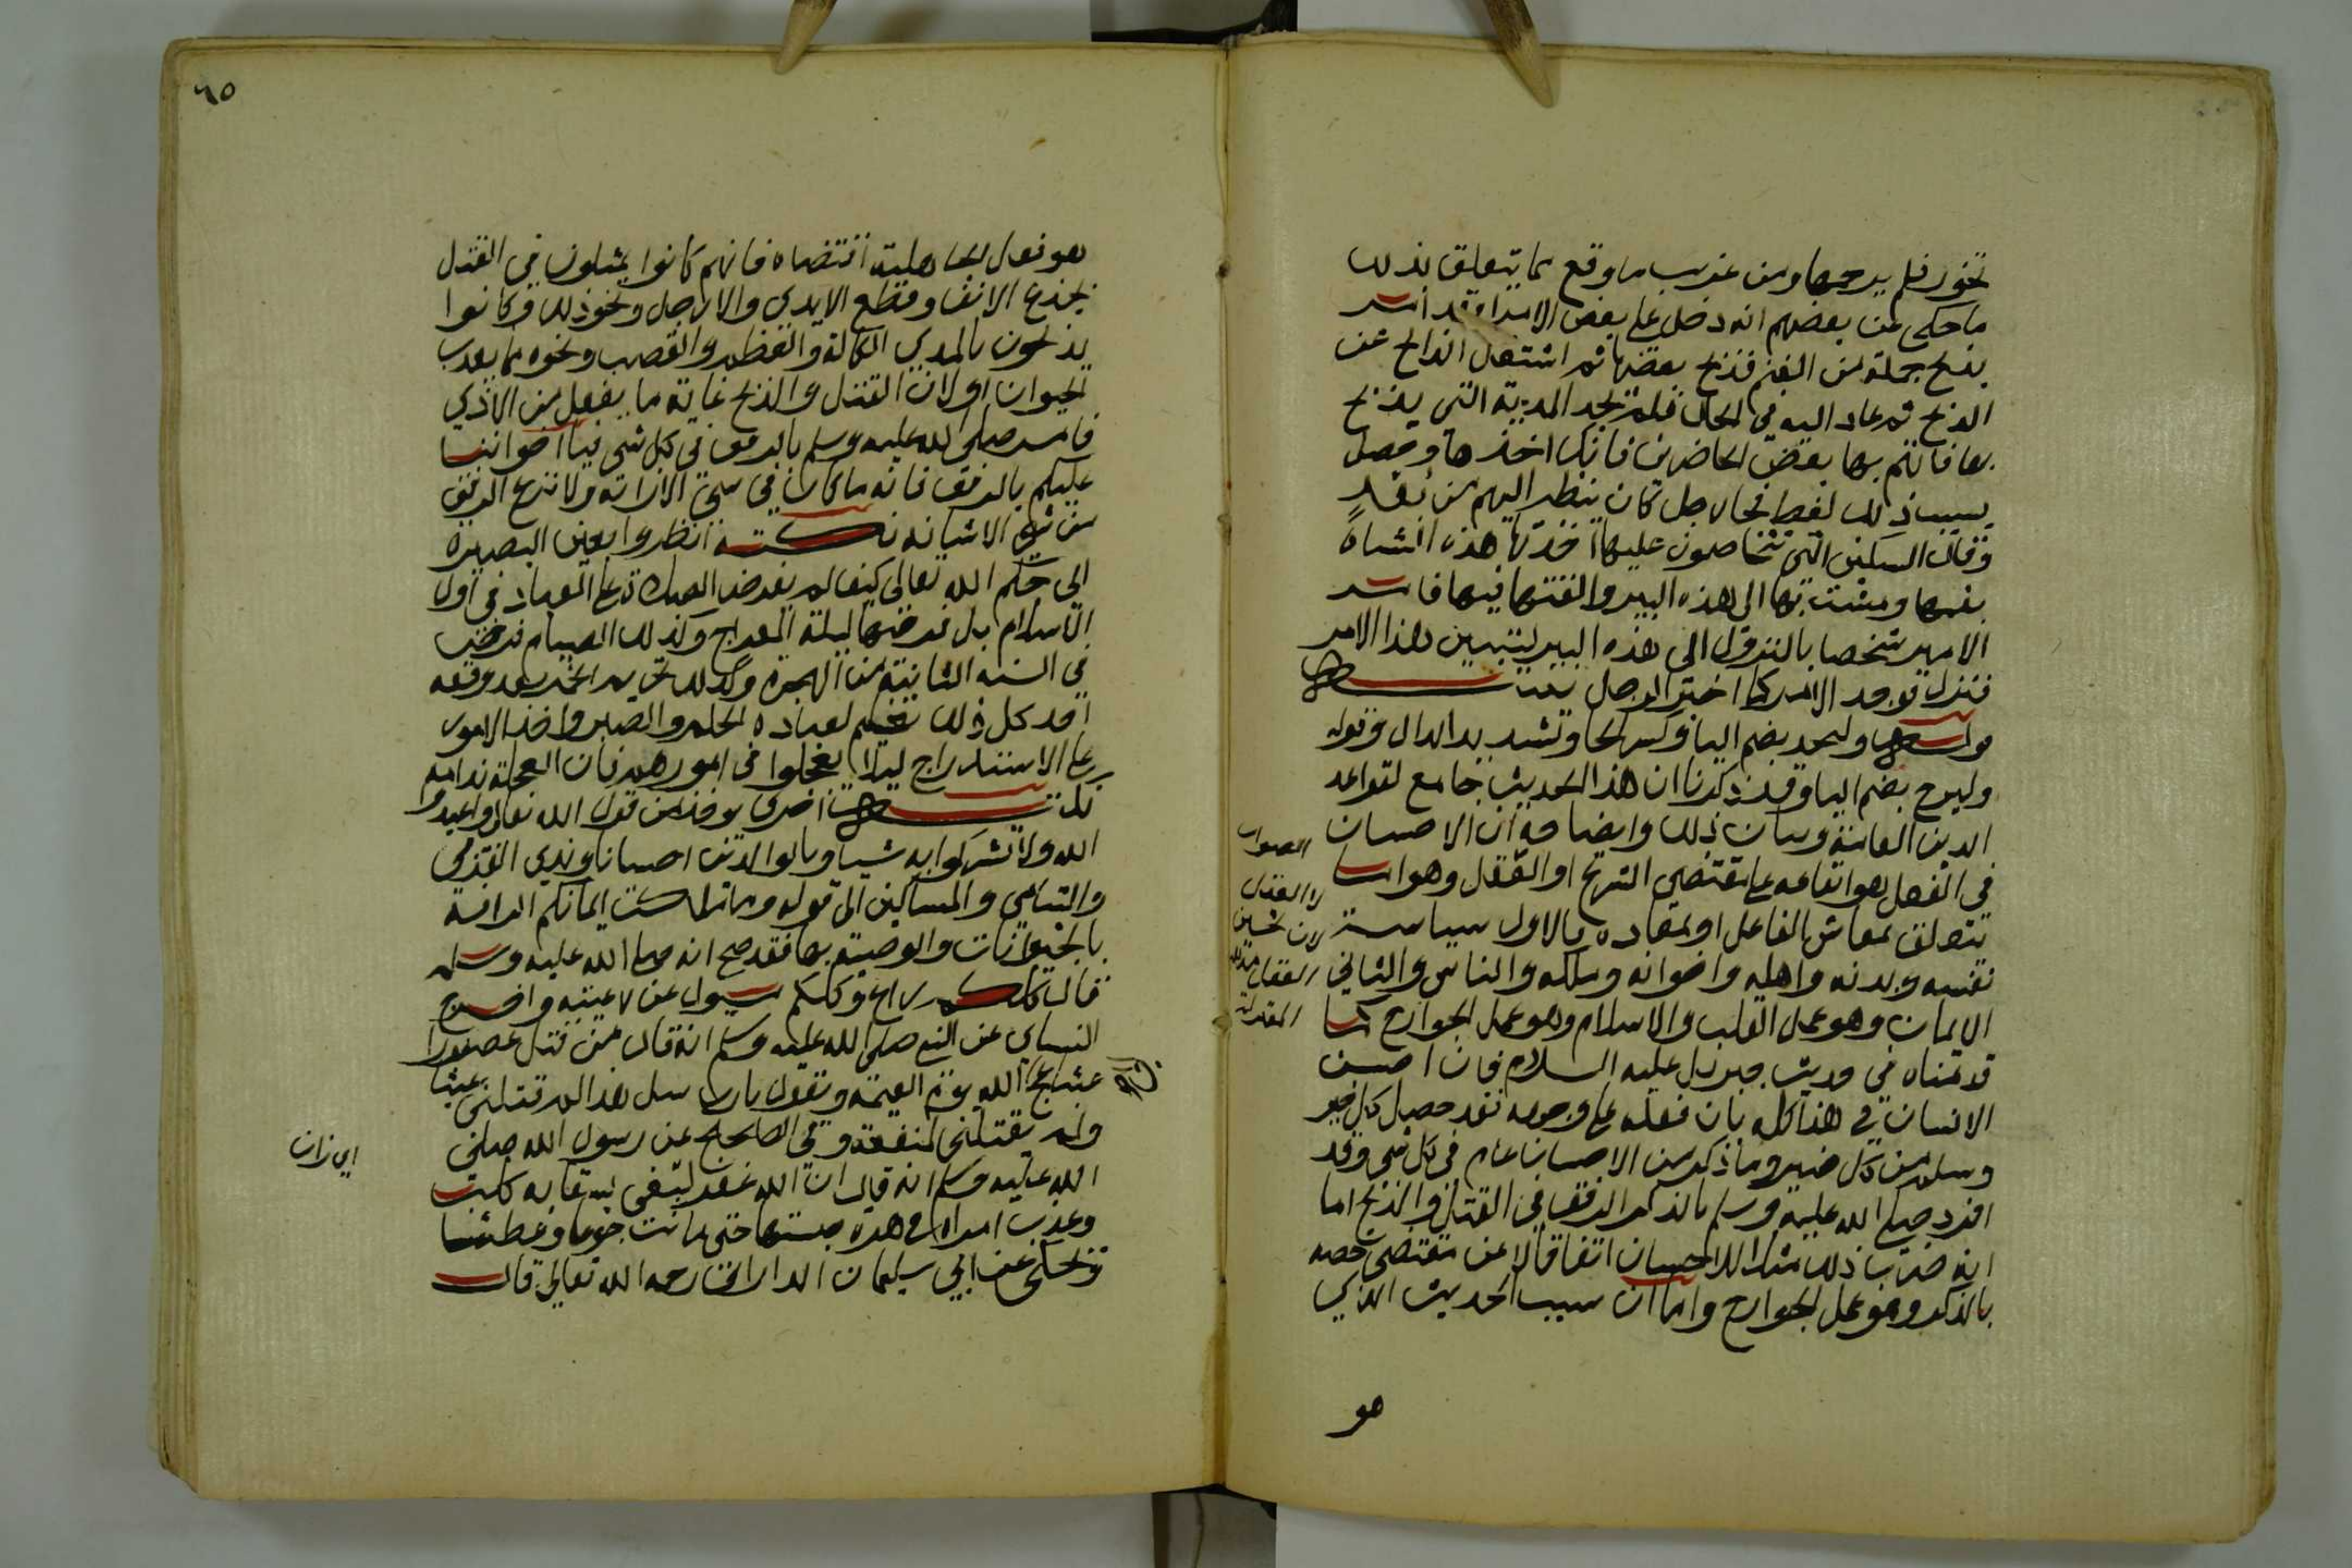 تخور فلم يرحمها ومن غريب ما وقع مما يتعلق بذلك
ما حكي عن بعضهم انه دخل على بعض الامرا وقد امر
بذبح جملة من الغنم فذبح بعضها ثم اشتغل الذابح عن
الذبح ثم عاد اليه في الحال فلم يجد المدية التي يذبح
بها فاتهم بها بعض الحاضرين فانكر اخذها وحصل
بسبب ذلك لغط فجا رجل كان ينظر اليهم من بعد
وقال السكين التي تتخاصمون عليها اخذتها هذه الشاة
بفمها ومشت بها الى هذه البير والقتها فيها فامر
الامير شخصا بالنزول الى هذه البير ليتبين هذا الامر
فنزل فوجد الامر كما اخبر الرجل
قوله وليحد بضم اليا وكسر الحا وتشديد الدال وقوله
وليرح بضم اليا وقد ذكرنا ان هذا الحديث جامع لقواعد
الدين العامة وبيان ذلك وايضاحه ان الاحسان
في الفعل هو ايقاعه على مقتضى الشرع او العقل وهو اما
يتعلق بمعاش الفاعل او بمعاده فالاول سياسة
نفسه وبدنه واهله واخوانه وملكه والناس والثاني
الايمان وهو عمل القلب والاسلام وهو عمل الجوارح كما
قدمناه في حديث جبريل عليه السلام فان احسن
الانسان في هذا كله بان فعله على وجهه فقد حصل كل خير
وسلم من كل ضير وما ذكر من الاحسان عام في كل شي وقد
افرد صلى الله عليه وسلم بالذكر الرفق في القتل والذبح اما
انه ضرب ذلك مثلا للاحسان اتفاقا لا عن مقتضي خصه
بالذكر وهو عمل الجوارح واما ان سبب الحديث الذي
هو
الصواب
العقل
٦٥
هو فعل الجاهلية اقتضاه فانهم كانوا يمثلون في القتل
بجذع الانف وقطع الايدي والارجل ونحو ذلك وكانوا
يذبحون بالمدي الكالة والعظم والقصب ونحوه مما يعذب
الحيوان او لان القتل والذبح غاية ما يفعل من الاذى
فامر صلى الله عليه وسلم بالرفق في كل شي فيا اخواننا
عليكم بالرفق فانه ما كان في شي الا زانه ولا نزع الرفق
من شي الا شانه نكتة انظروا بعين البصيرة
الى حكم الله تعالى كيف لم يفرض الصلاة على العباد في اول
الاسلام بل فرضها ليلة المعراج وكذلك الصيام فرض
في السنة الثانية من الهجرة وكذلك تحريم الخمر بعد وقعه
احد كل ذلك تعليم لعباده الحلم والصبر واخذ الامور
على الاستدراج ليلا يعجلوا في امورهم فان العجلة ندامة
اخرى يوخذ من قول الله تعالى واعبدوا
الله ولا تشركوا به شيا وبالوالدين احسانا وبذي القربى
واليتامى والمساكين الى قوله وما ملكت ايمانكم الرافة
بالحيوانات والوصية بها فقد صح انه صلى الله عليه وسلم
قال كلكم راع وكلكم مسيول عن رعيته واخرج
النساي عن النبي صلى الله عليه وسلم انه قال من قتل عصفورا
عبثا عج الى الله يوم القيمة ويقول يا رب سل هذا لم قتلني عبثا
ولم يقتلني لمنفعة وفي الصحيح عن رسول الله صلى
الله عليه وسلم انه قال ان الله غفر لبغي بسقاية كلب
وعذب امراة في هرة حبستها حتى ماتت جوعا وعطشا
وحكي عن ابي سليمان الداراني رحمه الله تعالى قال
اي زان